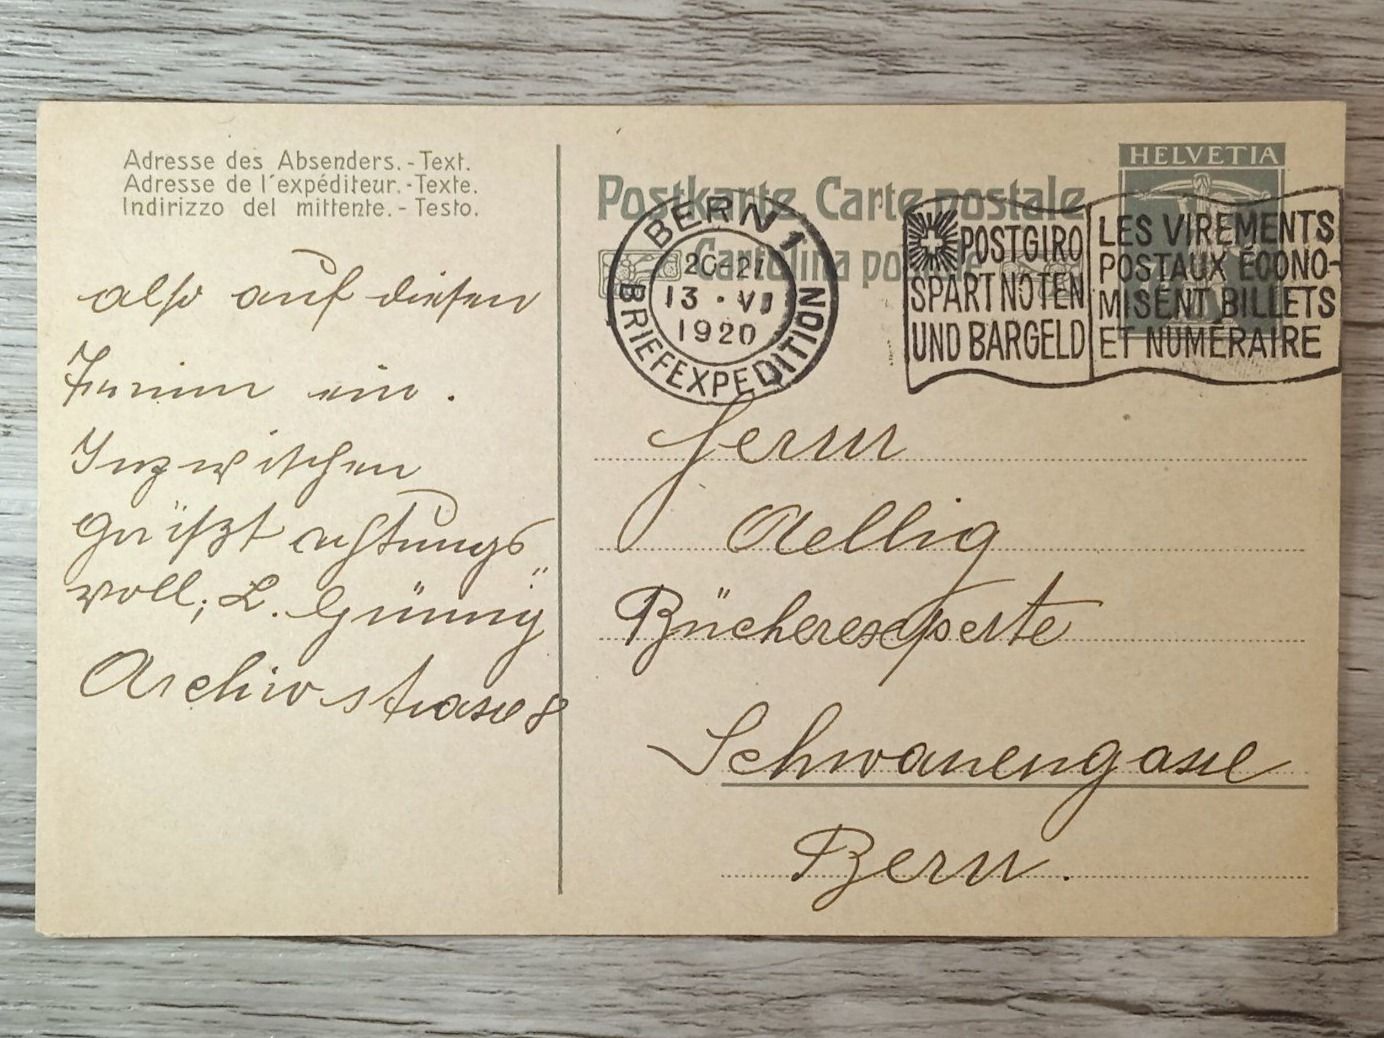 Adresse des Absenders. - Text.
Adresse de l'expéditeur. - Texte.
Indirizzo del mittente. - Testo.
also auf diesen
Termin ein.
Inzwischen
grüßt achtungs
voll, L.
Archivstrasse 8
Postkarte Carte postale
Cartolina postale
HELVETIA
BERN 1
20-21
13 · VI
1920
BRIEFEXPEDITION
POSTGIRO
SPART NOTEN
UND BARGELD
LES VIREMENTS
POSTAUX ÉCONO-
MISENT BILLETS
ET NUMÉRAIRE
Herrn
Aellig
Bücherexperte
Schwanengasse
Bern.